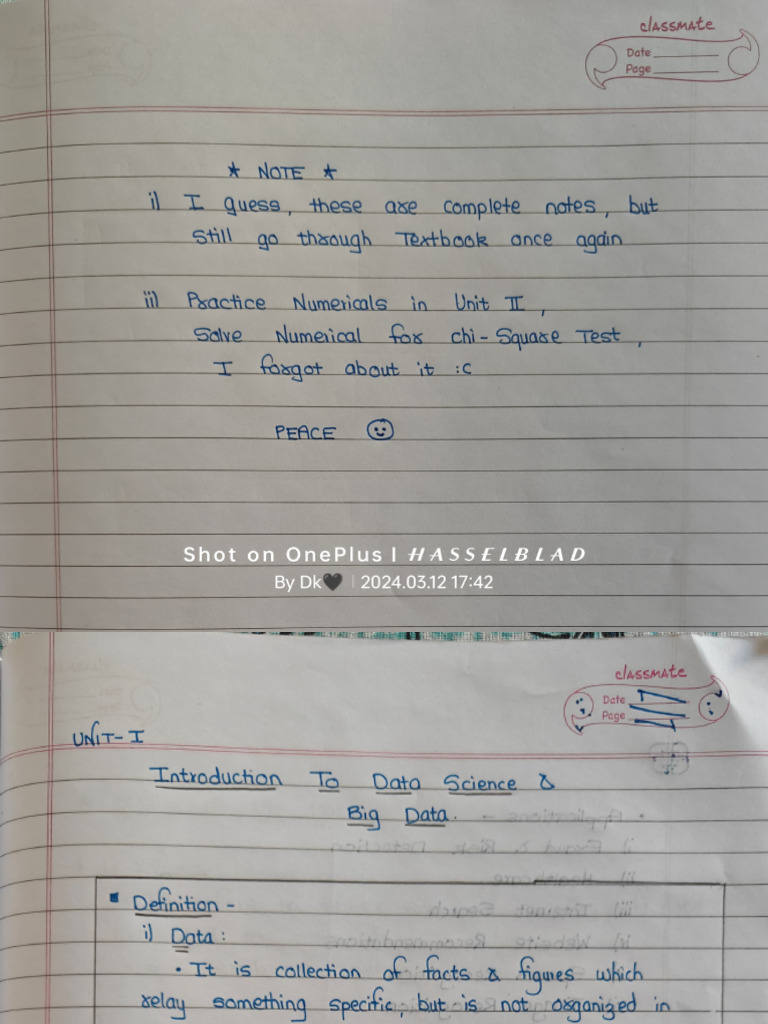 classmate
Date
Page
★ NOTE ★
i) I guess, these are complete notes, but
still go through Textbook once again
ii) Practice Numericals in Unit II,
Solve Numerical for chi-Square Test,
I forgot about it :C
PEACE
Shot on OnePlus | HASSELBLAD
By Dk🖤 | 2024.03.12 17:42
classmate
Date
Page
UNIT-I
Introduction To Data Science &
Big Data.
▪ Definition -
i) Data :
• It is collection of facts & figures which
relay something specific, but is not organized in